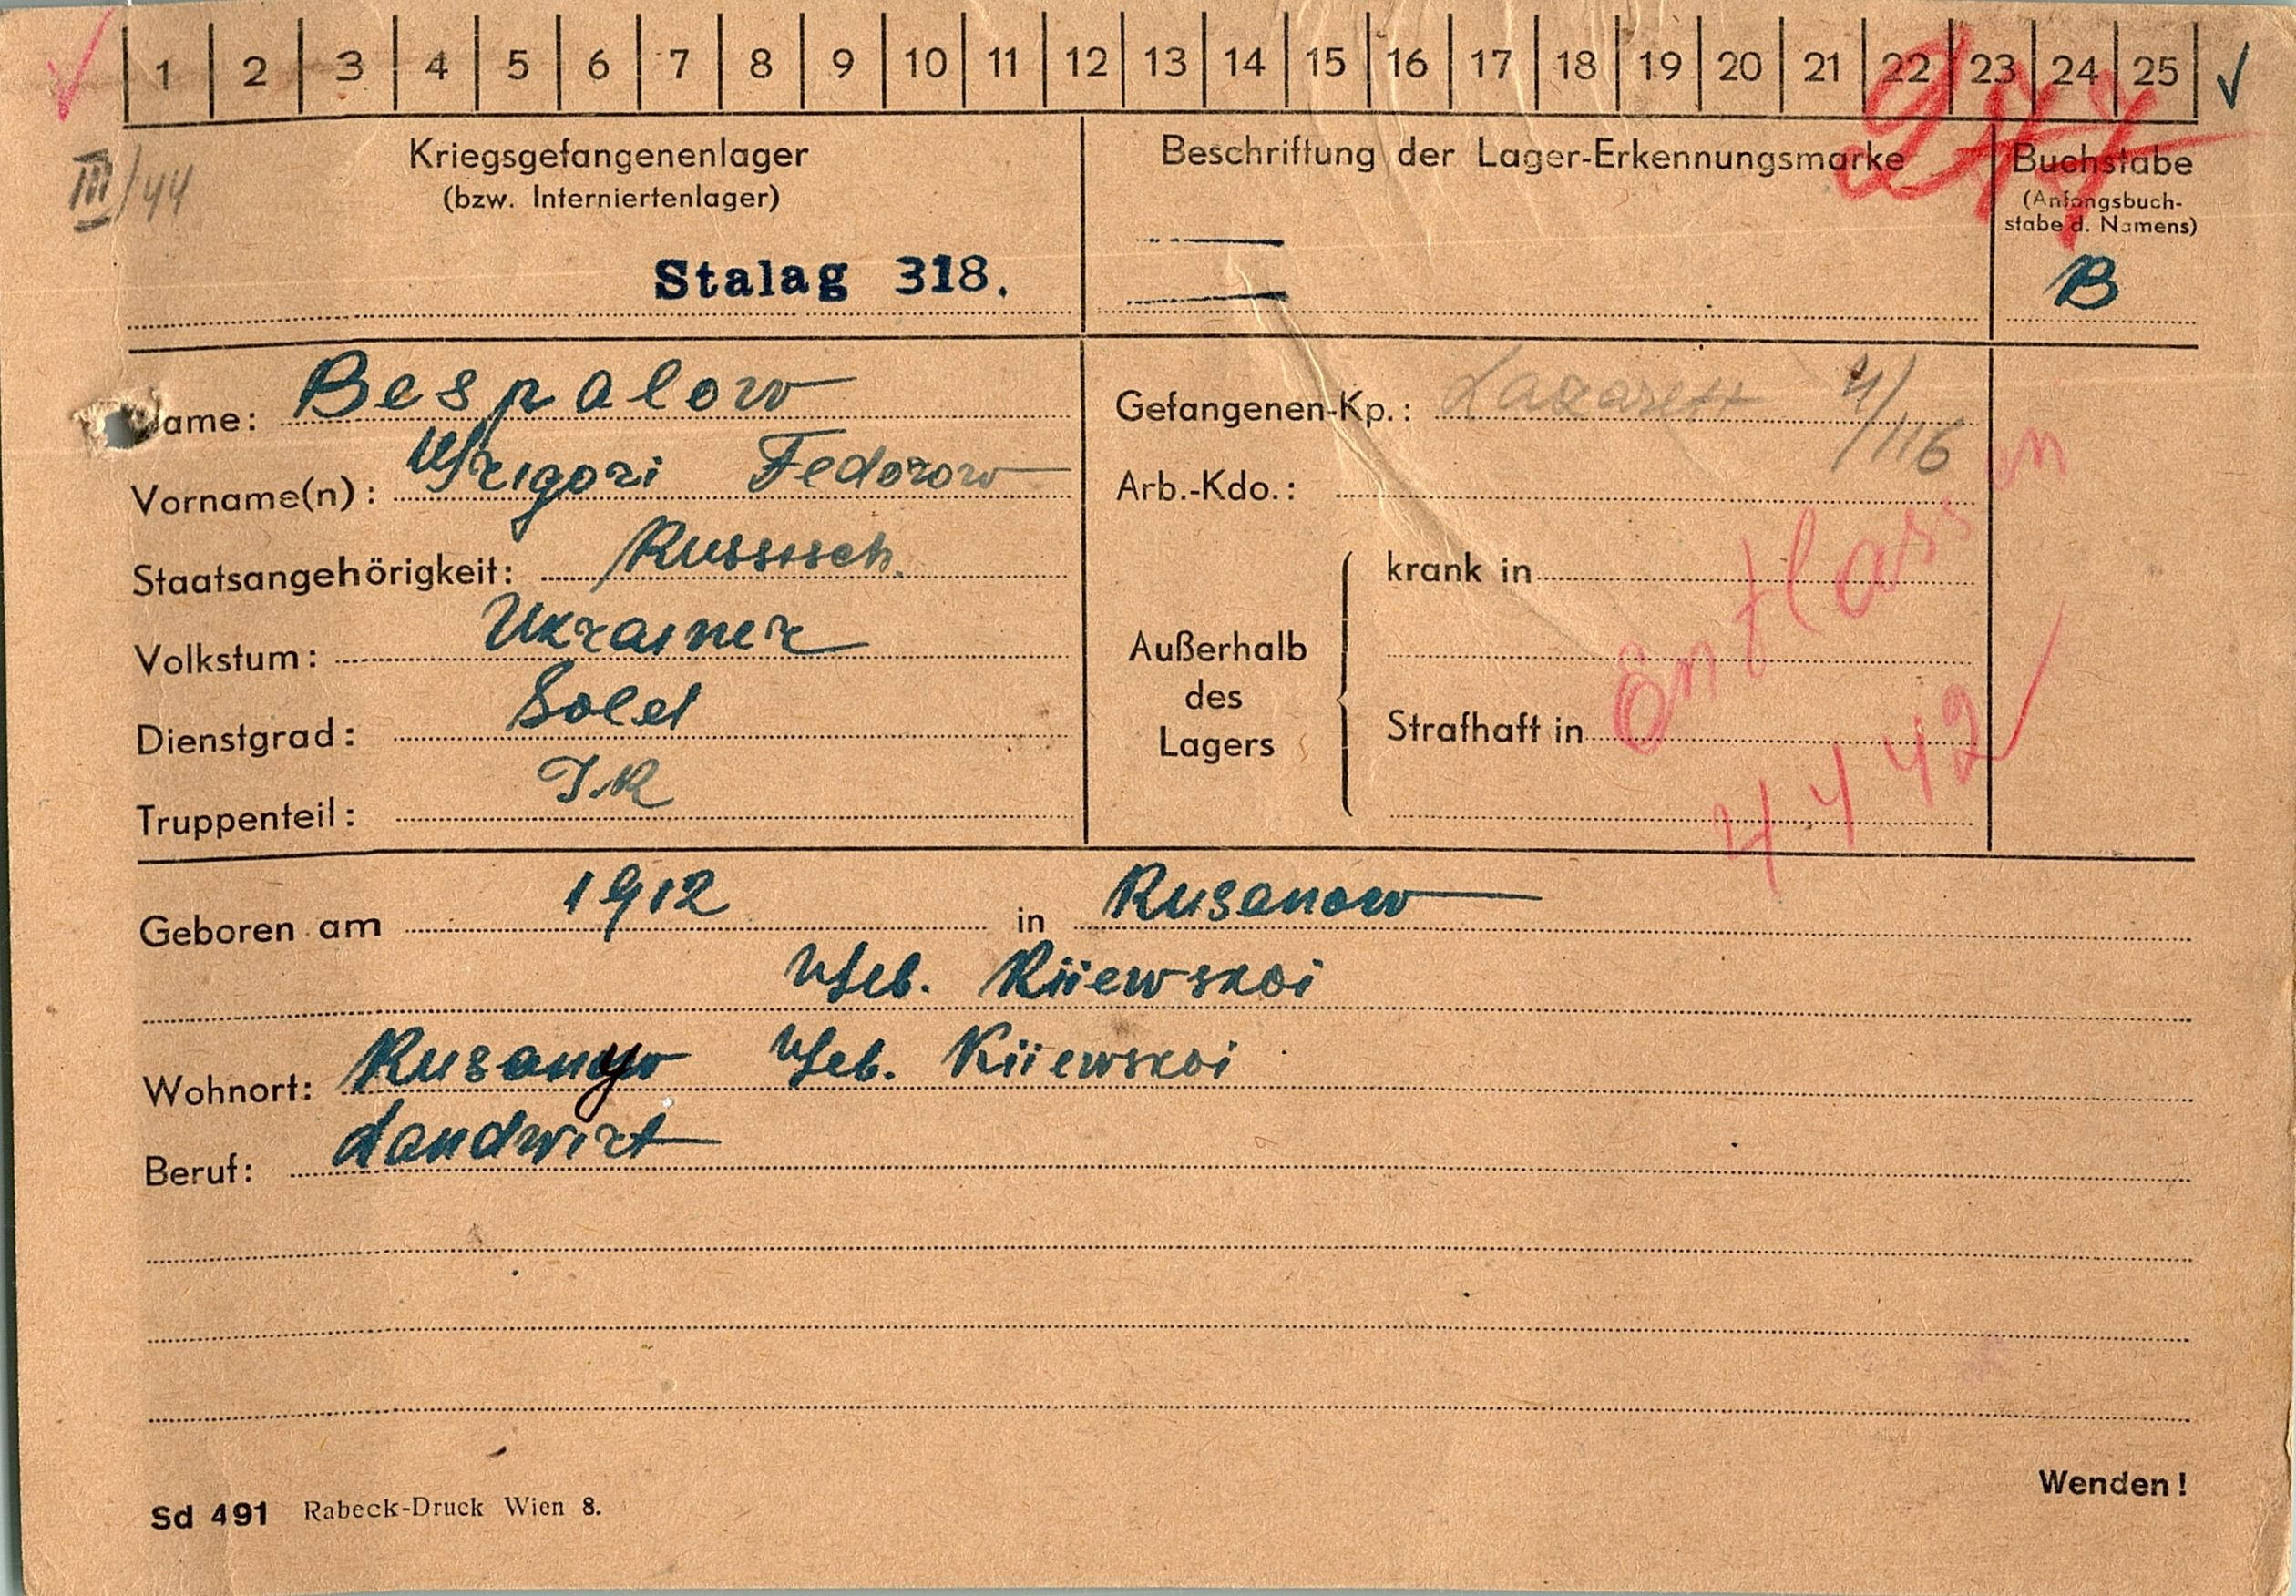 1 2 3 4 5 6 7 8 9 10 11 12 13 14 15 16 17 18 19 20 21 22 23 24 25
III/44
Kriegsgefangenenlager
(bzw. Interniertenlager)
Stalag 318.
Beschriftung der Lager-Erkennungsmarke
Buchstabe
(Anfangsbuch-
stabe d. Namens)
B
Name: Bespalow
Vorname(n): Grigori Fedorow
Staatsangehörigkeit: Russisch.
Volkstum: Ukrainer
Dienstgrad: Sold
Truppenteil: I.R
Gefangenen-Kp.: Lazarett 4/116
Arb.-Kdo.:
Außerhalb
des
Lagers
krank in
Strafhaft in
Entlassen
4 4 42
Geboren am 1912 in Rusanow
Geb. Kiiewskoi
Wohnort: Rusanow Geb. Kiiewskoi
Beruf: Landwirt
Wenden!
Sd 491 Rabeck-Druck Wien 8.